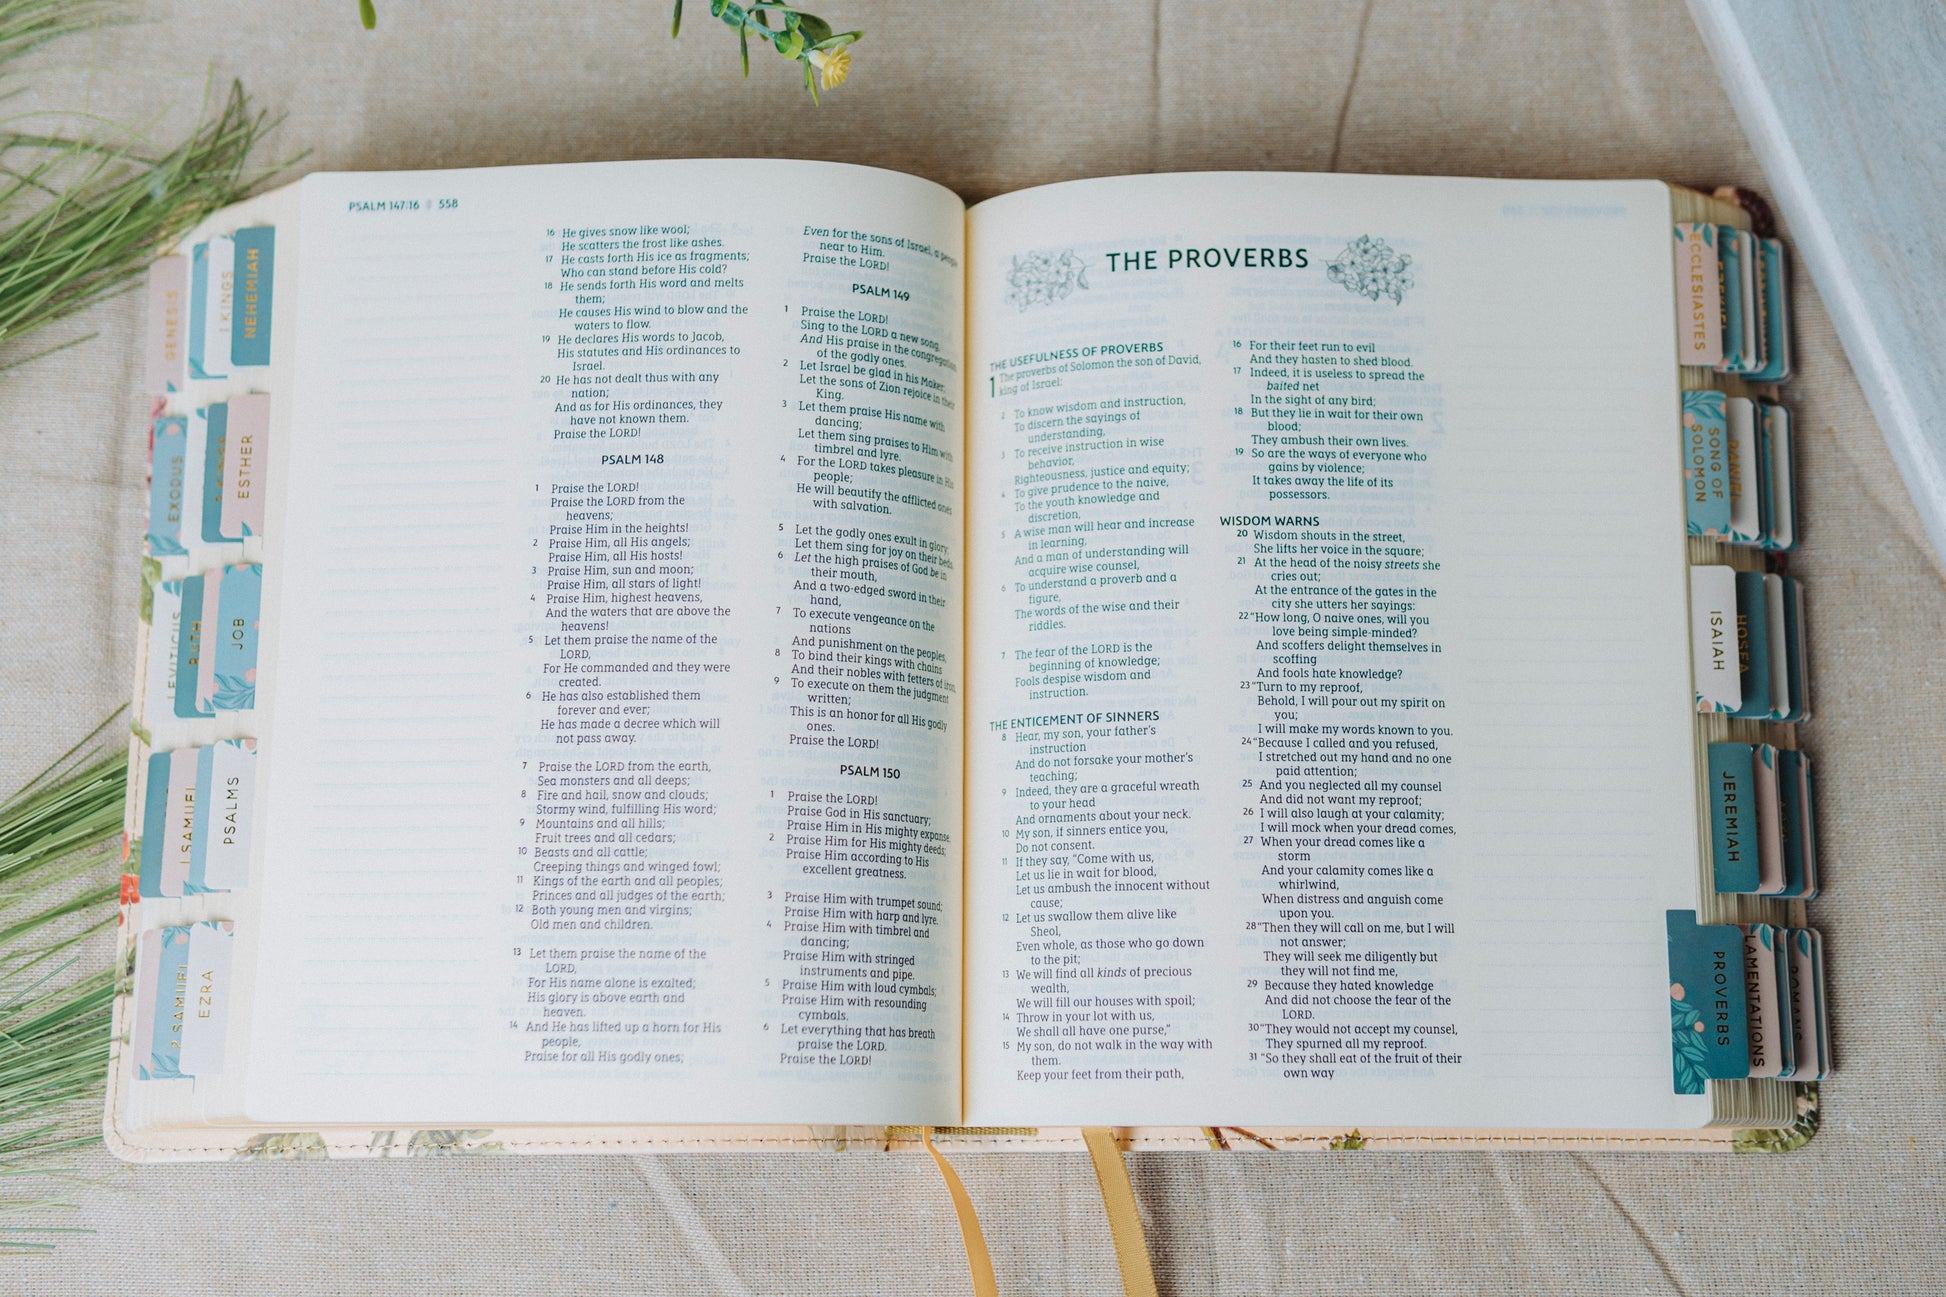 PSALM 147:16 558
16 He gives snow like wool;
He scatters the frost like ashes.
17 He casts forth His ice as fragments;
Who can stand before His cold?
18 He sends forth His word and melts
them;
He causes His wind to blow and the
waters to flow.
19 He declares His words to Jacob,
His statutes and His ordinances to
Israel.
20 He has not dealt thus with any
nation;
And as for His ordinances, they
have not known them.
Praise the LORD!
PSALM 148
1 Praise the LORD!
Praise the LORD from the
heavens;
Praise Him in the heights!
2 Praise Him, all His angels;
Praise Him, all His hosts!
3 Praise Him, sun and moon;
Praise Him, all stars of light!
4 Praise Him, highest heavens,
And the waters that are above the
heavens!
5 Let them praise the name of the
LORD,
For He commanded and they were
created.
6 He has also established them
forever and ever;
He has made a decree which will
not pass away.
7 Praise the LORD from the earth,
Sea monsters and all deeps;
8 Fire and hail, snow and clouds;
Stormy wind, fulfilling His word;
9 Mountains and all hills;
Fruit trees and all cedars;
10 Beasts and all cattle;
Creeping things and winged fowl;
11 Kings of the earth and all peoples;
Princes and all judges of the earth;
12 Both young men and virgins;
Old men and children.
13 Let them praise the name of the
LORD,
For His name alone is exalted;
His glory is above earth and
heaven.
14 And He has lifted up a horn for His
people,
Praise for all His godly ones;
Even for the sons of Israel, a people
near to Him.
Praise the LORD!
PSALM 149
1 Praise the LORD!
Sing to the LORD a new song,
And His praise in the congregation
of the godly ones.
2 Let Israel be glad in his Maker;
Let the sons of Zion rejoice in their
King.
3 Let them praise His name with
dancing;
Let them sing praises to Him with
timbrel and lyre.
4 For the LORD takes pleasure in His
people;
He will beautify the afflicted ones
with salvation.
5 Let the godly ones exult in glory;
Let them sing for joy on their beds.
6 Let the high praises of God be in
their mouth,
And a two-edged sword in their
hand,
7 To execute vengeance on the
nations
And punishment on the peoples,
8 To bind their kings with chains
And their nobles with fetters of iron,
9 To execute on them the judgment
written;
This is an honor for all His godly
ones.
Praise the LORD!
PSALM 150
1 Praise the LORD!
Praise God in His sanctuary;
Praise Him in His mighty expanse.
2 Praise Him for His mighty deeds;
Praise Him according to His
excellent greatness.
3 Praise Him with trumpet sound;
Praise Him with harp and lyre.
4 Praise Him with timbrel and
dancing;
Praise Him with stringed
instruments and pipe.
5 Praise Him with loud cymbals;
Praise Him with resounding
cymbals.
6 Let everything that has breath
praise the LORD.
Praise the LORD!
THE PROVERBS
THE USEFULNESS OF PROVERBS
1 The proverbs of Solomon the son of David,
king of Israel:
2 To know wisdom and instruction,
To discern the sayings of
understanding,
3 To receive instruction in wise
behavior,
Righteousness, justice and equity;
4 To give prudence to the naive,
To the youth knowledge and
discretion,
5 A wise man will hear and increase
in learning,
And a man of understanding will
acquire wise counsel,
6 To understand a proverb and a
figure,
The words of the wise and their
riddles.
7 The fear of the LORD is the
beginning of knowledge;
Fools despise wisdom and
instruction.
THE ENTICEMENT OF SINNERS
8 Hear, my son, your father's
instruction
And do not forsake your mother's
teaching;
9 Indeed, they are a graceful wreath
to your head
And ornaments about your neck.
10 My son, if sinners entice you,
Do not consent.
11 If they say, "Come with us,
Let us lie in wait for blood,
Let us ambush the innocent without
cause;
12 Let us swallow them alive like
Sheol,
Even whole, as those who go down
to the pit;
13 We will find all kinds of precious
wealth,
We will fill our houses with spoil;
14 Throw in your lot with us,
We shall all have one purse,"
15 My son, do not walk in the way with
them.
Keep your feet from their path,
16 For their feet run to evil
And they hasten to shed blood.
17 Indeed, it is useless to spread the
baited net
In the sight of any bird;
18 But they lie in wait for their own
blood;
They ambush their own lives.
19 So are the ways of everyone who
gains by violence;
It takes away the life of its
possessors.
WISDOM WARNS
20 Wisdom shouts in the street,
She lifts her voice in the square;
21 At the head of the noisy streets she
cries out;
At the entrance of the gates in the
city she utters her sayings:
22 "How long, O naive ones, will you
love being simple-minded?
And scoffers delight themselves in
scoffing
And fools hate knowledge?
23 "Turn to my reproof,
Behold, I will pour out my spirit on
you;
I will make my words known to you.
24 "Because I called and you refused,
I stretched out my hand and no one
paid attention;
25 And you neglected all my counsel
And did not want my reproof;
26 I will also laugh at your calamity;
I will mock when your dread comes,
27 When your dread comes like a
storm
And your calamity comes like a
whirlwind,
When distress and anguish come
upon you.
28 "Then they will call on me, but I will
not answer;
They will seek me diligently but
they will not find me,
29 Because they hated knowledge
And did not choose the fear of the
LORD.
30 "They would not accept my counsel,
They spurned all my reproof.
31 "So they shall eat of the fruit of their
own way
GENESIS
1 KINGS
NEHEMIAH
EXODUS
ESTHER
LEVITICUS
RUTH
JOB
1 SAMUEL
PSALMS
2 SAMUEL
EZRA
ECCLESIASTES
SONG OF
SOLOMON
DANIEL
ISAIAH
HOSEA
JEREMIAH
PROVERBS
LAMENTATIONS
ROMANS